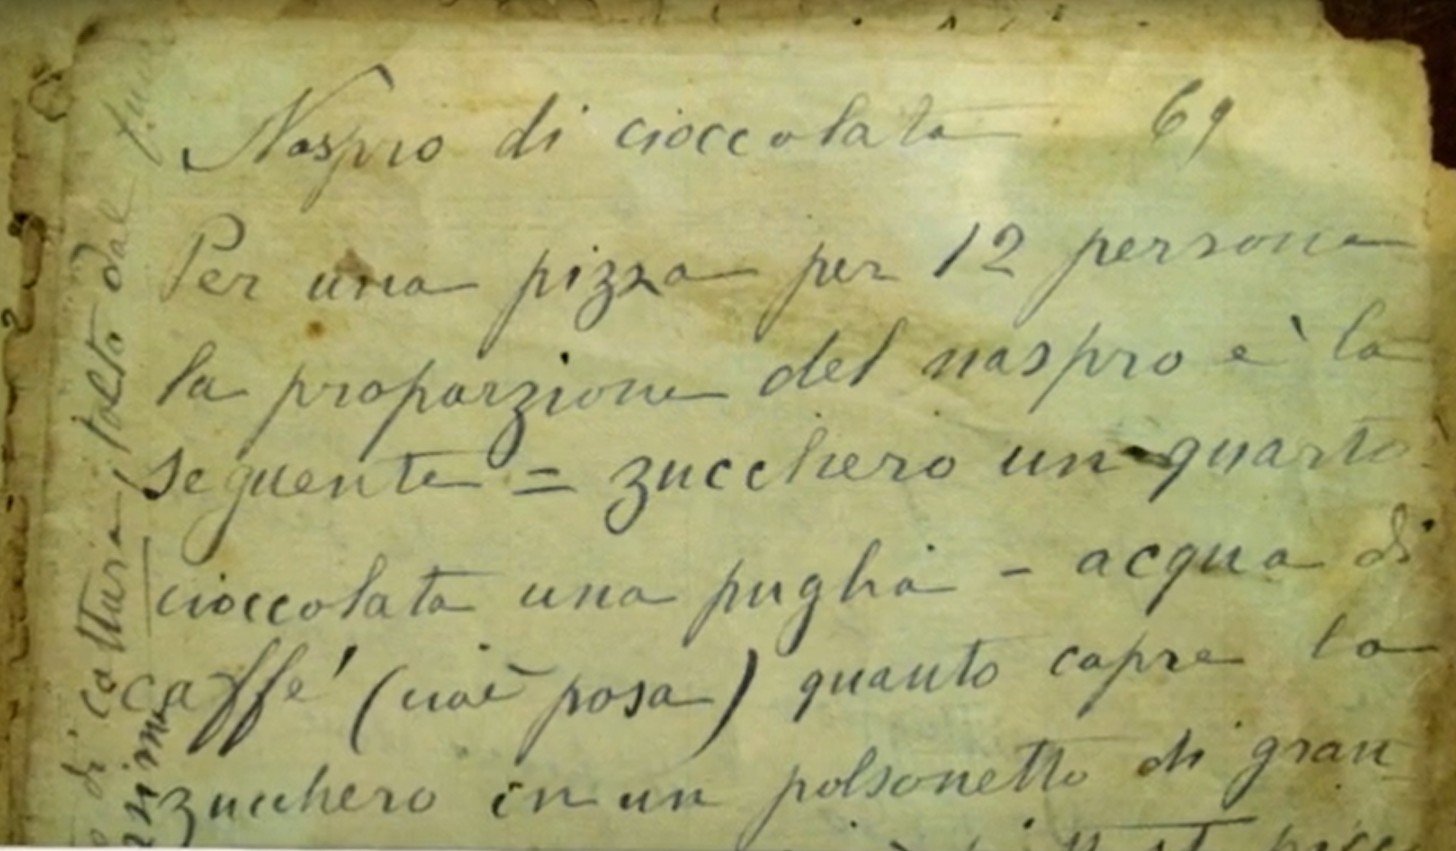 Naspro di cioccolata 69
Per una pizza per 12 persone
la proporzione del naspro è la
seguente = zucchero un quarto
cioccolata una puglia - acqua di
caffe' (cioè posa) quanto copre lo
zucchero in un polsonetto di gran
di cottura, tolto dal